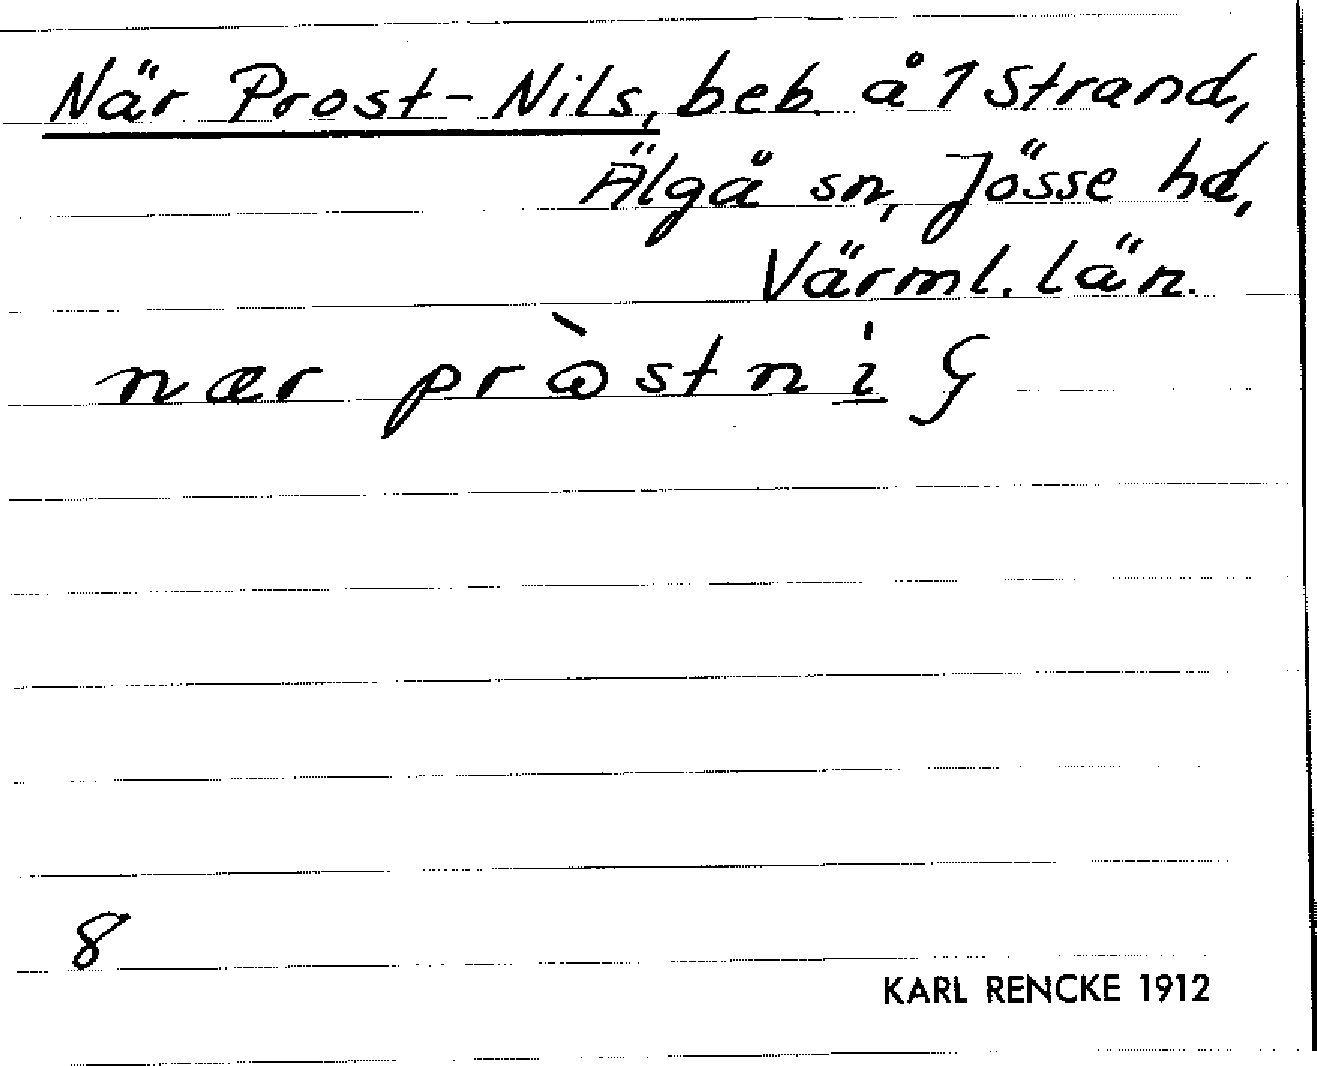 När Prost-Nils, beb. å 1 Strand,
Älgå sn, Jösse hd,
Värml. län.
nær
8
KARL RENCKE 1912